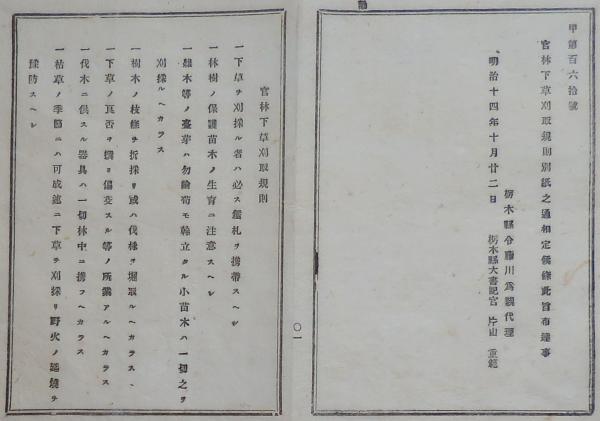 甲第百六拾號
官林下草刈取規則別紙之通相定候條此旨布達事
明治十四年十月廿二日
栃木縣令藤川爲親代理
栃木縣大書記官 片山 重範
官林下草刈取規則
一下草ヲ刈採ル者ハ必ス鑑札ヲ携帶スヘシ
一林樹ノ保護苗木ノ生育ニ注意スヘシ
一雜木等ノ蘖芽ハ勿論苟モ幹立タル小苗木ハ一切之ヲ
刈採ルヘカラス
一樹木ノ枝條ヲ折採リ或ハ伐株ヲ堀取ルヘカラス
一下草ノ良否ヲ撰ヒ偏支スル等ノ所業アルヘカラス
一伐木ニ供スル器具ハ一切林中ニ携フヘカラス
一枯草ノ季節ニハ可成速ニ下草ヲ刈採リ野火ノ延燒ヲ
豫防スヘシ
〇一